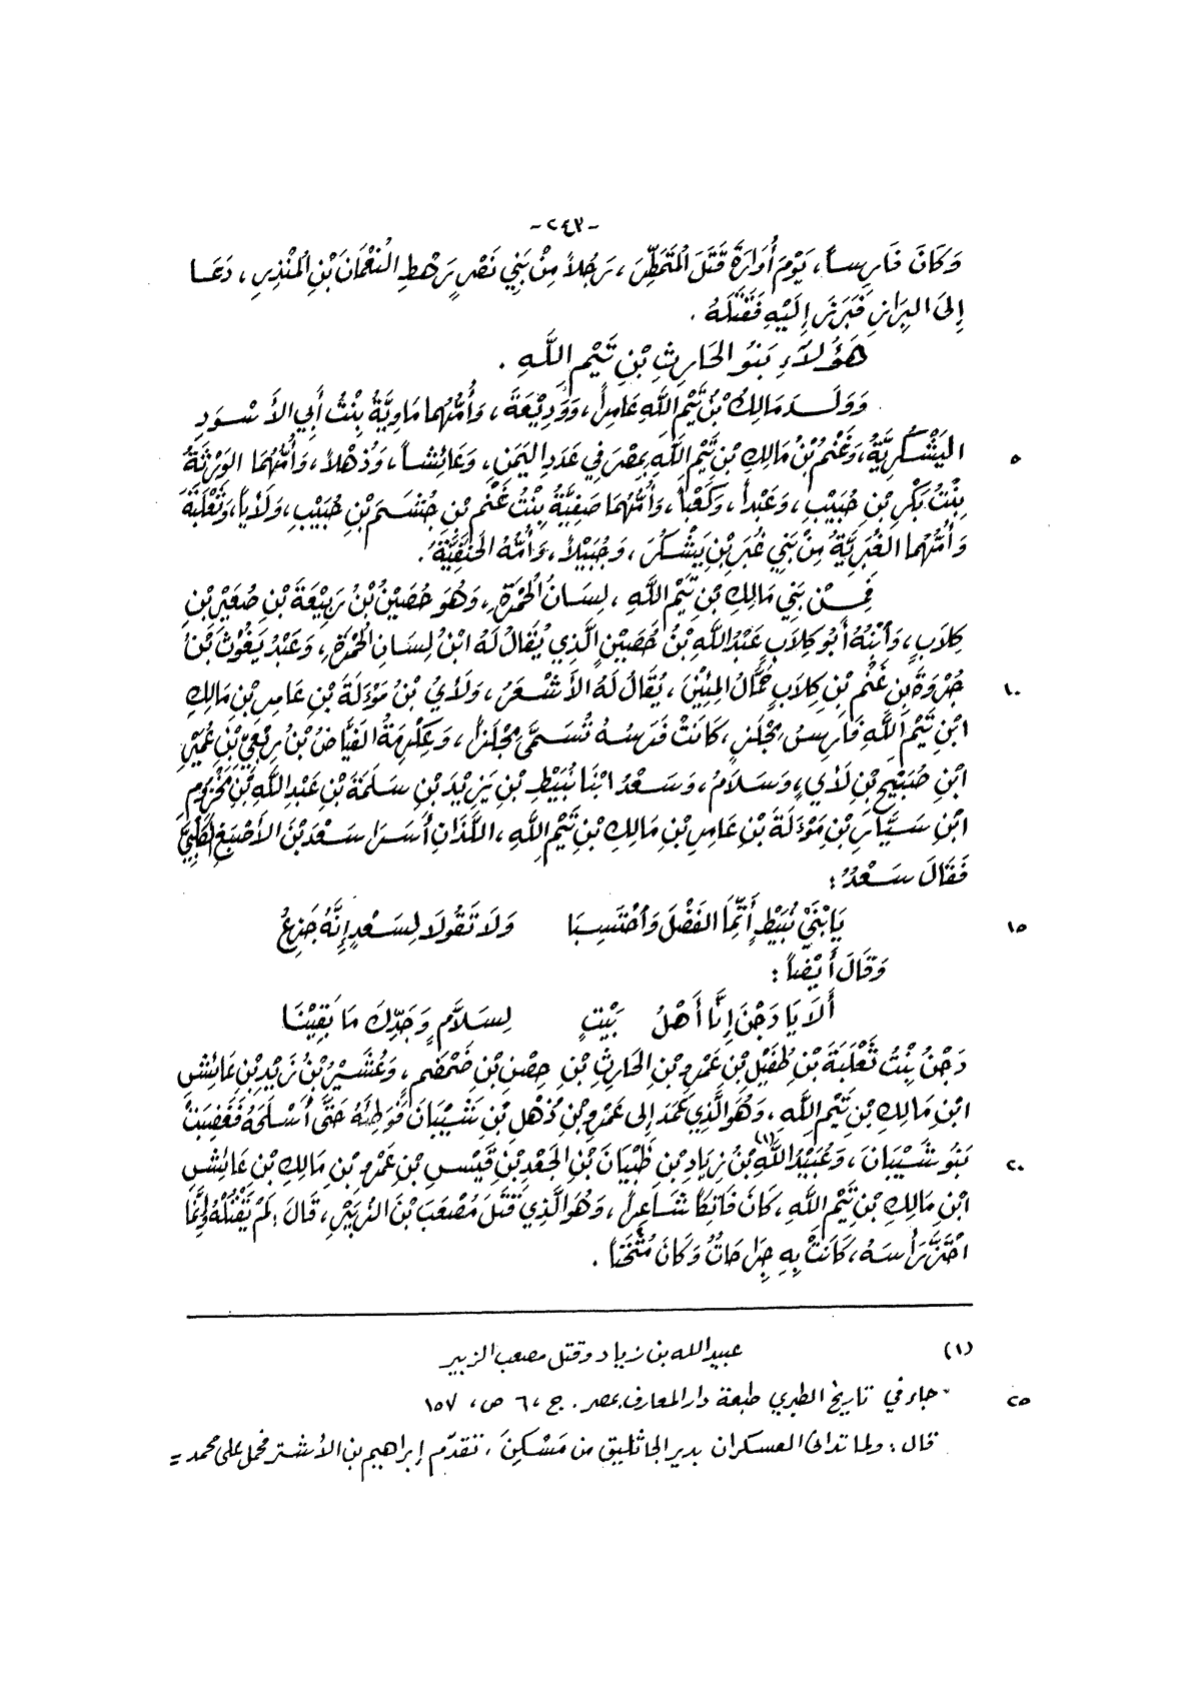 -٢٤٣-
وَكَانَ فَارِساً، يَوْمَ أُوَارَةَ قَتَلَ المُتَمَطِّرَ، رَجُلاً مِنْ بَنِي نَصْرٍ رَهْطِ النُّعْمَانِ بْنِ المُنْذِرِ، دَعَا
إِلَى البِرَازِ فَبَرَزَ إِلَيْهِ فَقَتَلَهُ .
هَؤُلاَءِ بَنُو الحَارِثِ بْنِ تَيْمِ اللَّهِ .
وَوَلَدَ مَالِكُ بْنُ تَيْمِ اللَّهِ عَامِراً، وَوَدِيْعَةَ، وَأُمُّهُما مَاوِيَّةُ بِنْتُ أَبِي الأَسْوَدِ
اليَشْكُرِيَّةُ، وَغَنْمُ بْنُ مَالِكِ بْنِ تَيْمِ اللَّهِ بِمِصْرَ فِي عَدَدِ اليَمَنِ، وَعَائِشاً، وَذُهْلاً، وَأُمُّهُمَا الوَرِثَةُ ٥
بِنْتُ بَكْرِ بْنِ حُبَيْبٍ، وَعَبْداً، وَكَعْباً، وَأُمُّهُمَا صَفِيَّةُ بِنْتُ غَنْمِ بْنِ جُشَمِ بْنِ حُبَيْبٍ، وَلَأْياً، وَثَعْلَبَةَ
وَأُمُّهُما الغُبَرِيَّةُ مِنْ بَنِي غُبَرِ بْنِ يَشْكُرَ، وَحُبَيْلاً، وَأُمُّهُ الحَنَفِيَّةُ .
فَمِنْ بَنِي مَالِكِ بْنِ تَيْمِ اللَّهِ، لِسَانُ الحُمَّرَةِ، وَهُوَ حُصَيْنُ بْنُ رَبِيْعَةَ بْنِ صُعَيْرِ بْنِ
كِلاَبٍ، وَابْنُهُ أَبُو كِلاَبٍ عَبْدُ اللَّهِ بْنُ حُصَيْنٍ الَّذِي يُقَالُ لَهُ ابْنُ لِسَانِ الحُمَّرَةِ، وَعَبْدُ يَغُوْثَ بْنُ
جُرْوَةَ بْنِ غَنْمِ بْنِ كِلاَبٍ حَمَّالُ المِئِيْنَ، يُقَالُ لَهُ الأَشْعَرُ، وَلَأْيُ بْنُ مَوْءَلَةَ بْنِ عَامِرِ بْنِ مَالِكِ ١٠
ابْنِ تَيْمِ اللَّهِ فَارِسُ مِجْلَزٍ، كَانَتْ فَرَسُهُ تُسَمَّى مِجْلَزاً، وَعِكْرِمَةُ الفَيَّاضُ بْنُ رِبْعِيِّ بْنِ عُمَيْرِ
ابْنِ صُبَيْحِ بْنِ لَأْيٍ، وَسَلاَمُ، وَسَعْدُ ابْنَا نُبَيْطِ بْنِ يَزِيْدَ بْنِ سَلَمَةَ بْنِ عَبْدِ اللَّهِ بْنِ مَخْزُومِ
ابْنِ سَيَّارِ بْنِ مَوْءَلَةَ بْنِ عَامِرِ بْنِ مَالِكِ بْنِ تَيْمِ اللَّهِ، اللَّذَانِ أَسَرَا سَعْدَ بْنَ الأَصْبَغِ الكَلْبِيَّ
فَقَالَ سَعْدٌ :
يَا بْنَيْ نُبَيْطٍ أَتِمَّا الفَضْلَ وَاحْتَسِبَا وَلاَ تَقُولاَ لِسَعْدٍ إِنَّهُ جَزِعُ ١٥
وَقَالَ أَيْضاً :
أَلاَ يَا دَجْنَ إِنَّا أَهْلُ بَيْتٍ لِسَلاَّمٍ وَجَدِّكَ مَا بَقِيْنَا
دَجْنُ بِنْتُ ثَعْلَبَةَ بْنِ طُفَيْلِ بْنِ عَمْرِو بْنِ الحَارِثِ بْنِ حِصْنِ بْنِ ضَمْضَمٍ، وَعُشَيْرُ بْنُ زَيْدِ بْنِ عَائِشِ
ابْنِ مَالِكِ بْنِ تَيْمِ اللَّهِ، وَهُوَ الَّذِي عَمَدَ إِلَى عَمْرِو بْنِ ذُهْلِ بْنِ شَيْبَانَ فَوَطِئَهُ حَتَّى أَسْلَحَهُ فَغَضِبَتْ
بَنُو شَيْبَانَ، وَعُبَيْدُ اللَّهِ(١) بْنُ زِيَادِ بْنِ ظَبْيَانَ بْنِ الجَعْدِ بْنِ قَيْسِ بْنِ عَمْرِو بْنِ مَالِكِ بْنِ عَائِشِ ٢٠
ابْنِ مَالِكِ بْنِ تَيْمِ اللَّهِ، كَانَ فَاتِكاً شَاعِراً، وَهُوَ الَّذِي قَتَلَ مُصْعَبَ بْنَ الزُّبَيْرِ، قَالَ : لَمْ يَقْتُلْهُ وَإِنَّمَا
احْتَزَّ رَأْسَهُ، كَانَتْ بِهِ جِرَاحَاتٌ وَكَانَ مُثْخَناً .
(١) عبيد الله بن زياد وقتل مصعب الزبير
- جاء في تاريخ الطبري طبعة دار المعارف بمصر . ج ، ٦ ص ، ١٥٧ ٢٥
قال : ولما تدانى العسكران بدير الجاثليق من مَسْكِنَ ، تقدّم إبراهيم بن الأشتر فحمل على محمد =